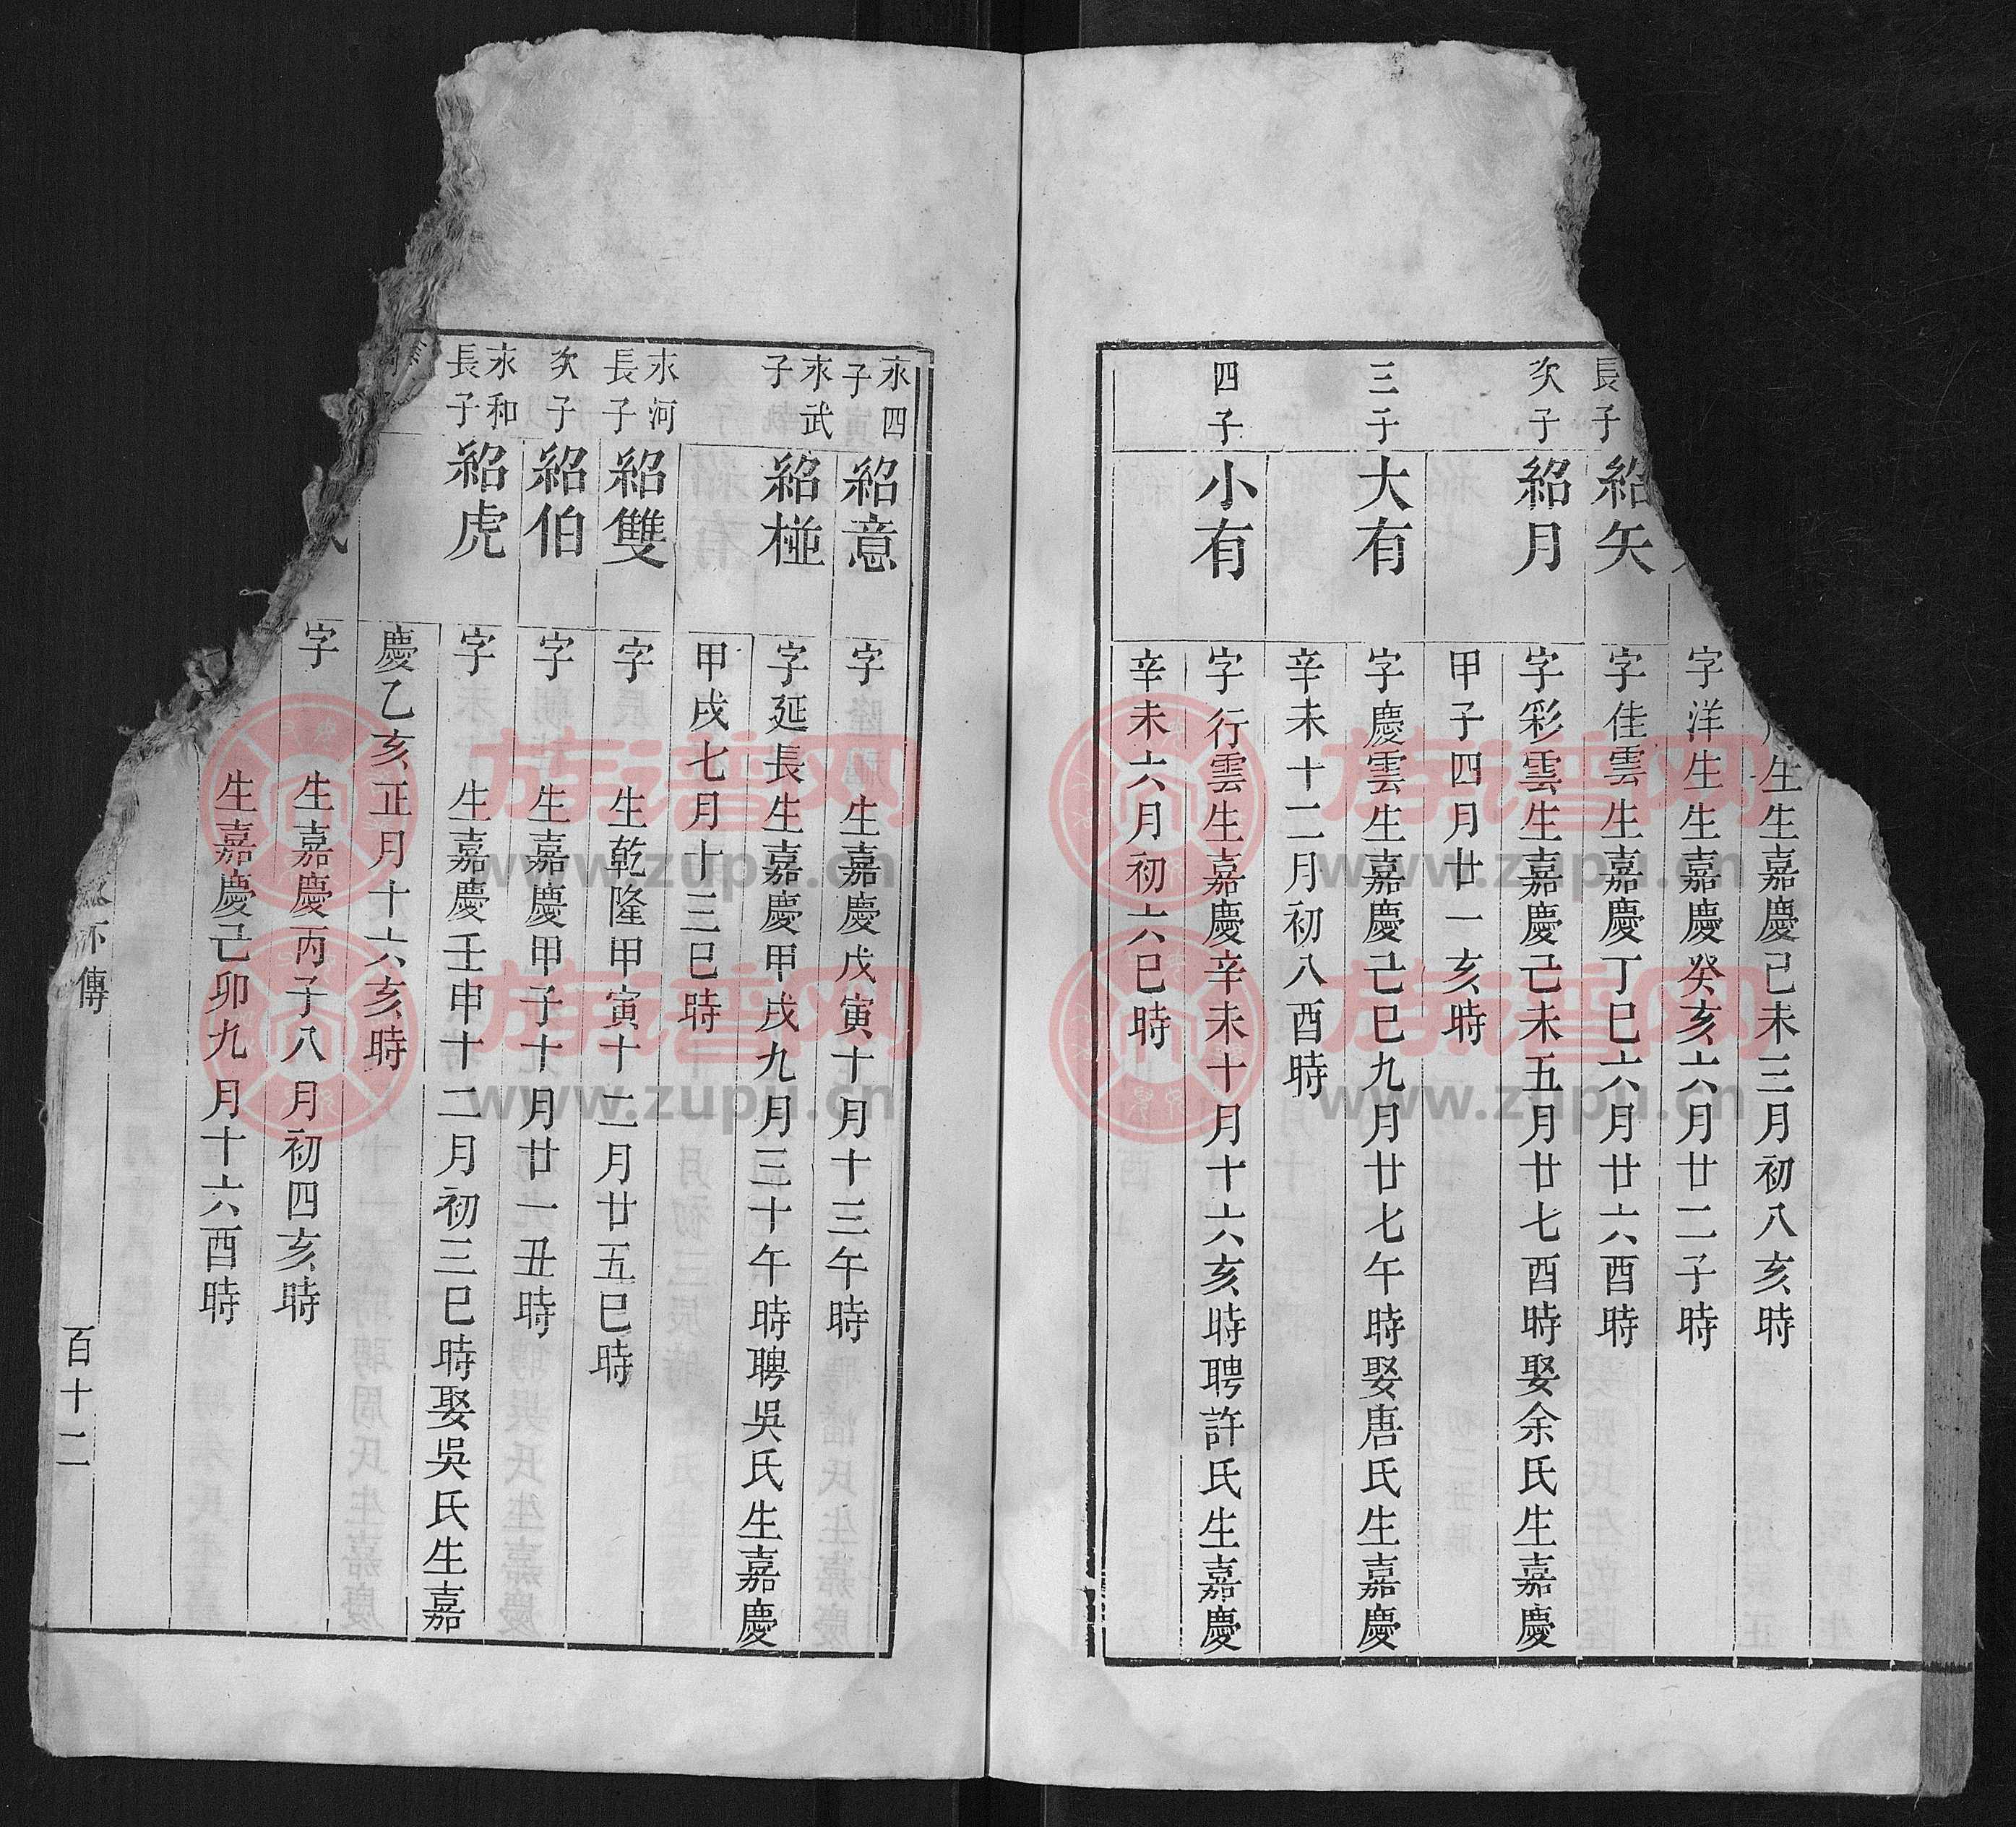 生生嘉慶己未三月初八亥時
字洋生生嘉慶癸亥六月廿二子時
長子
紹矢
字佳雲生嘉慶丁巳六月廿六酉時
次子
紹月
字彩雲生嘉慶己未五月廿七酉時娶余氏生嘉慶
甲子四月廿一亥時
三子
大有
字慶雲生嘉慶己巳九月廿七午時娶唐氏生嘉慶
辛未十二月初八酉時
四子
小有
字行雲生嘉慶辛未十月十六亥時聘許氏生嘉慶
辛未六月初六巳時
永四
子
紹意
字 生嘉慶戊寅十月十三午時
永武
子
紹椪
字延長生嘉慶甲戌九月三十午時聘吳氏生嘉慶
甲戌七月十三巳時
永河
長子
紹雙
字 生乾隆甲寅十二月廿五巳時
次子
紹伯
字 生嘉慶甲子十月廿一丑時
永和
長子
紹虎
字 生嘉慶壬申十二月初三巳時娶吳氏生嘉
慶乙亥正月十六亥時
字 生嘉慶丙子八月初四亥時
生嘉慶己卯九月十六酉時
下傳
百十二
族谱网
www.zupu.cn
族谱网
www.zupu.cn
族谱网
www.zupu.cn
族谱网
www.zupu.cn